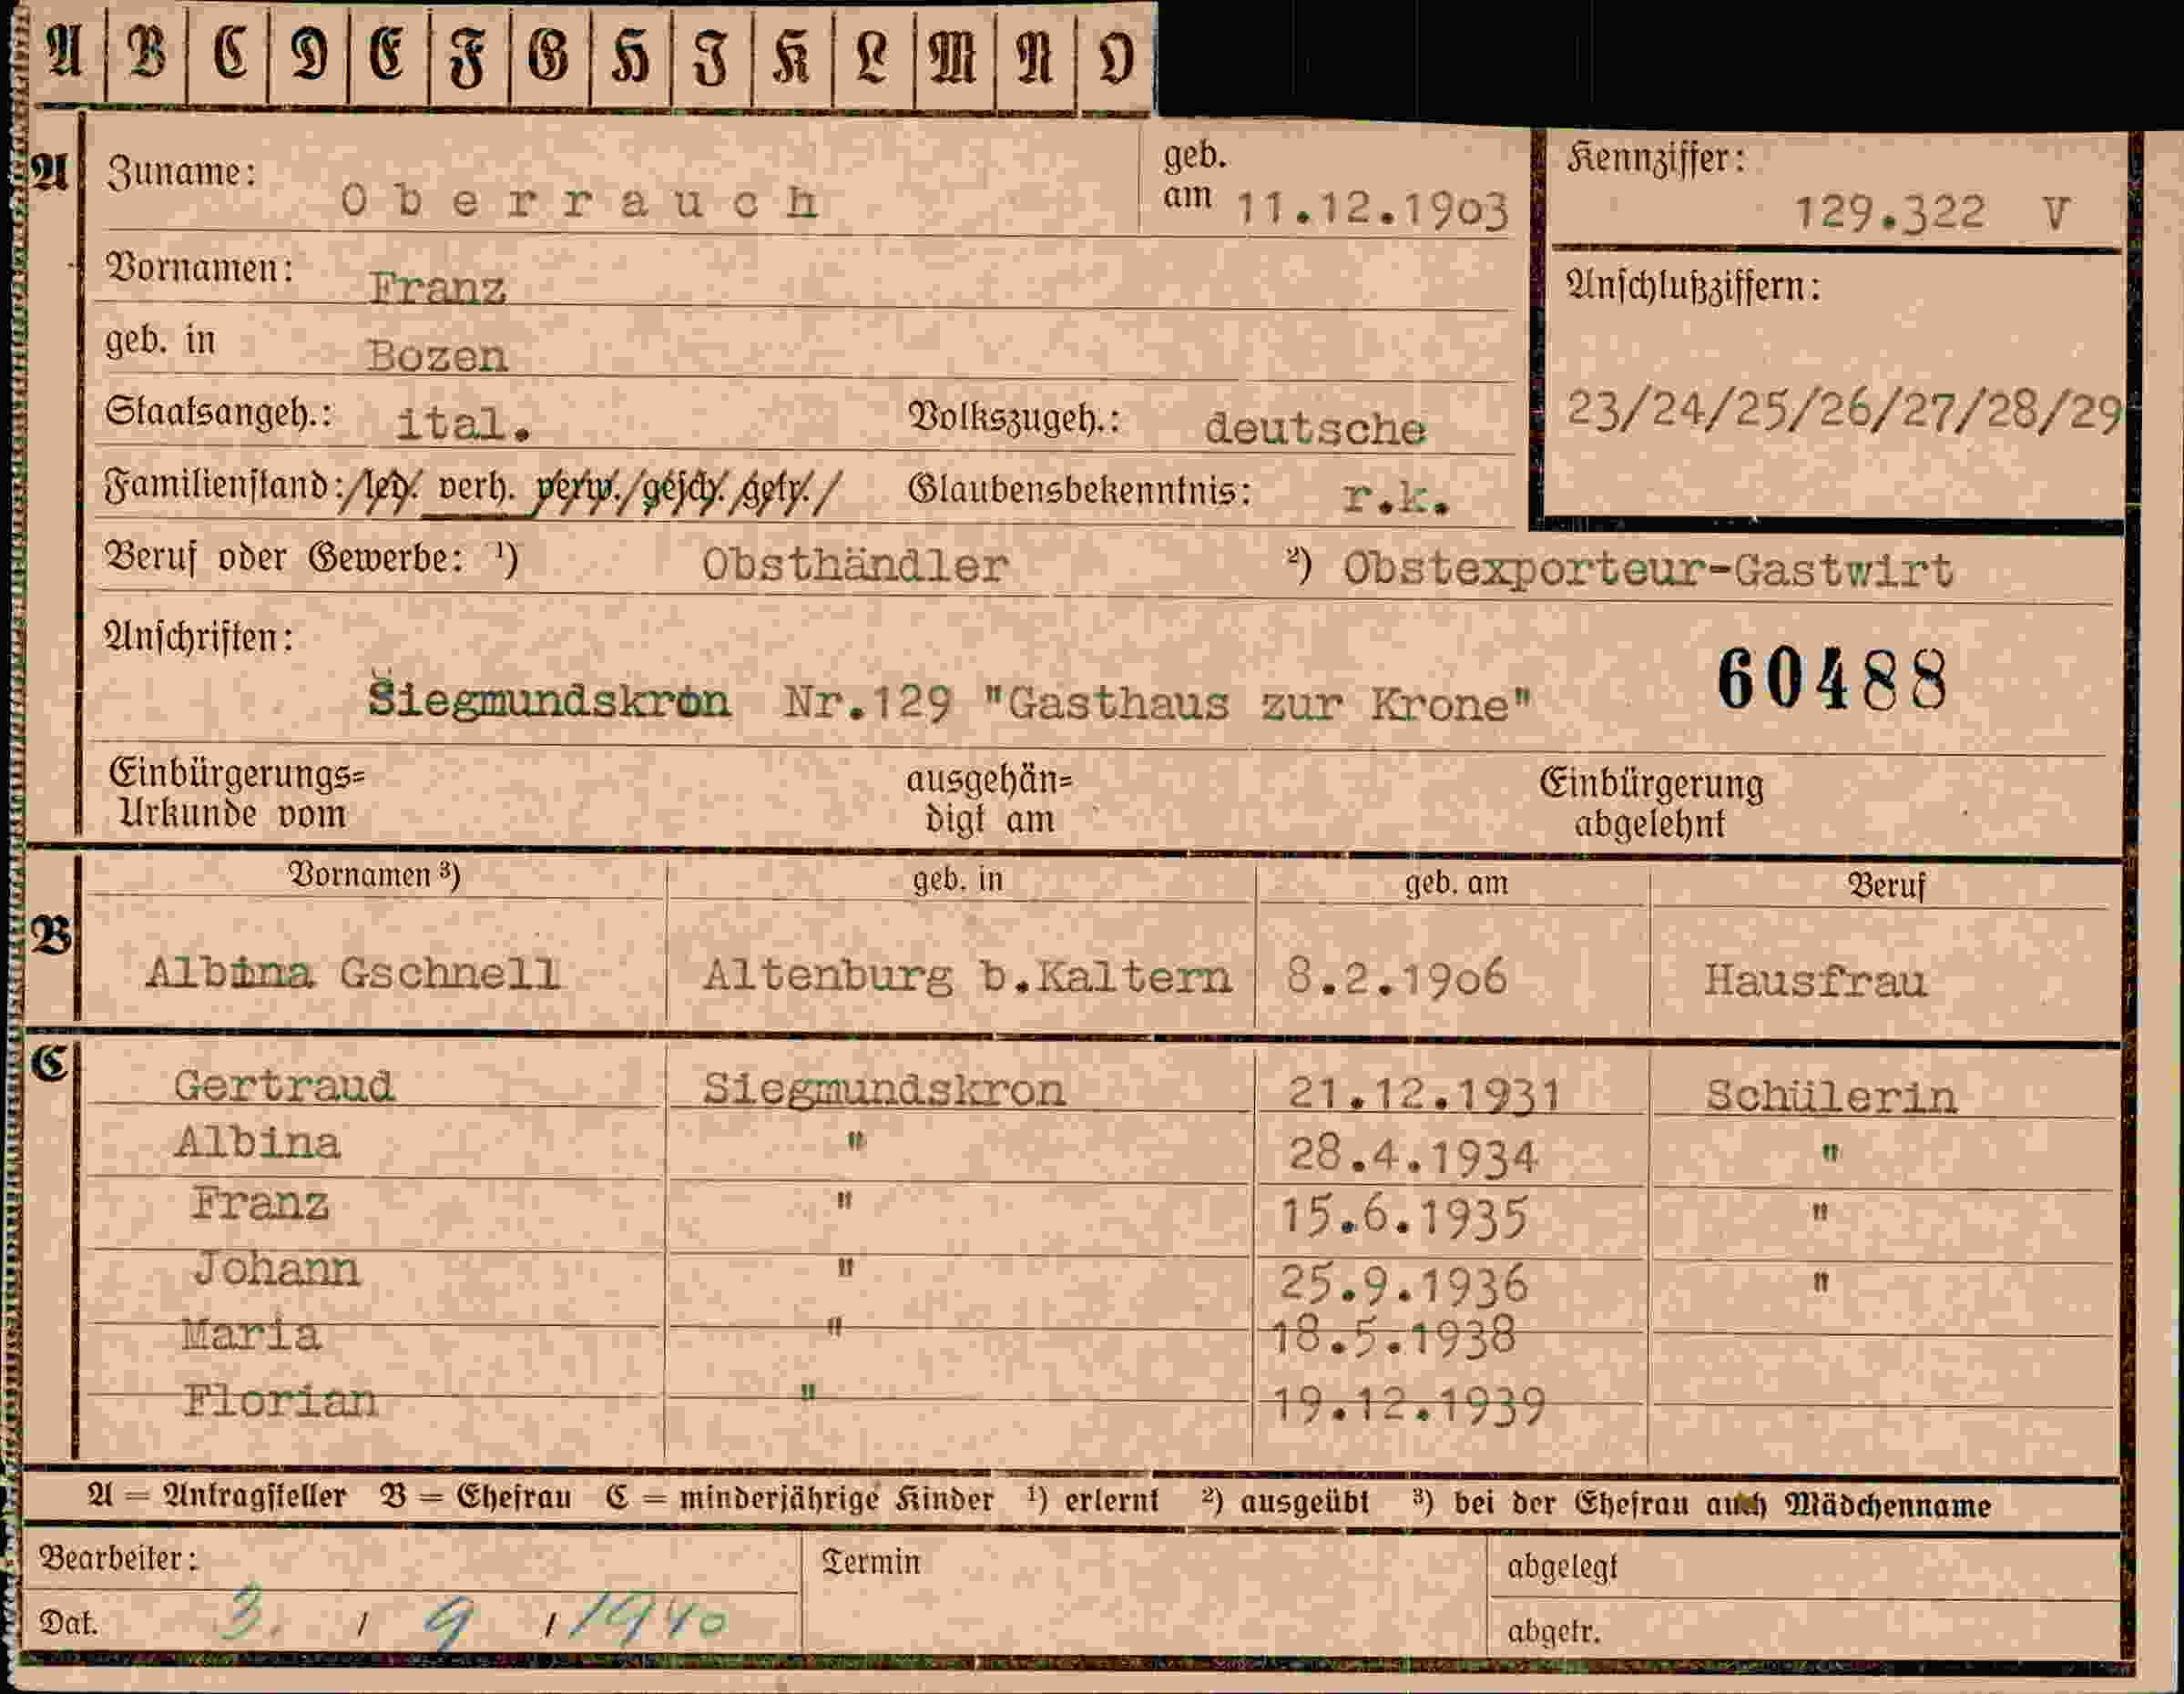 A B C D E F G H I K L M N O
A Zuname: Oberrauch geb. am 11.12.1903 Kennziffer: 129.322 V
Vornamen: Franz Anschlußziffern:
geb. in Bozen
23/24/25/26/27/28/29
Staatsangeh.: ital. Volkszugeh.: deutsche
Familienstand: /led. verh. verw./gesch./getr./ Glaubensbekenntnis: r.k.
Beruf oder Gewerbe: ¹) Obsthändler ²) Obstexporteur-Gastwirt
Anschriften:
Siegmundskron Nr.129 "Gasthaus zur Krone" 60488
Einbürgerungs= ausgehän= Einbürgerung
Urkunde vom digt am abgelehnt
Vornamen ³) geb. in geb. am Beruf
B Albina Gschnell Altenburg b.Kaltern 8.2.1906 Hausfrau
C Gertraud Siegmundskron 21.12.1931 Schülerin
Albina " 28.4.1934 "
Franz " 15.6.1935 "
Johann " 25.9.1936 "
Maria " 18.5.1938
Florian " 19.12.1939
A = Antragsteller B = Ehefrau C = minderjährige Kinder ¹) erlernt ²) ausgeübt ³) bei der Ehefrau auch Mädchenname
Bearbeiter: Termin abgelegt
Dat. 3. / 9 / 1940 abgetr.